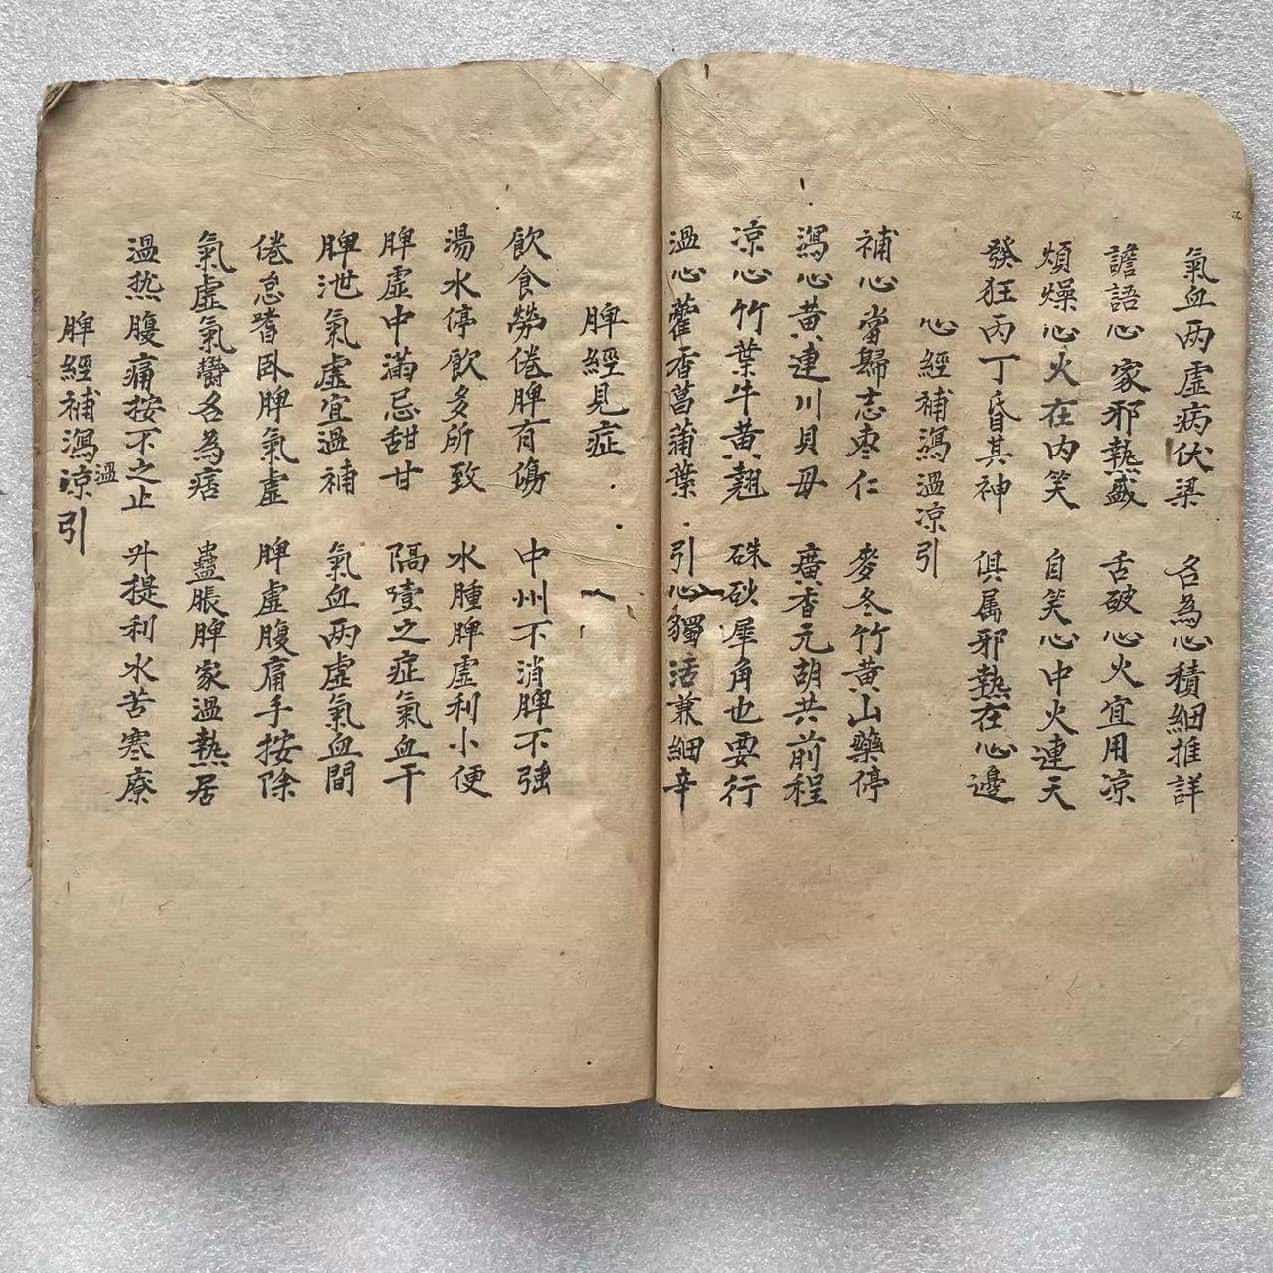 氣血两虛病伏梁 名為心積細推詳
譫語心家邪熱盛 舌破心火宜用凉
煩燥心火在内笑 自笑心中火連天
發狂丙丁昏其神 俱属邪熱在心邊
心經補瀉温凉引
補心當歸志枣仁 麥冬竹黄山藥停
瀉心黄連川貝母 廣香元胡共前程
凉心竹葉牛黄翹 硃砂犀角也要行
温心藿香菖蒲葉 引心獨活兼細辛
脾經見症
飲食勞倦脾有傷 中州不消脾不強
湯水停飲多所致 水腫脾虛利小便
脾虛中滿忌甜甘 隔噎之症氣血干
脾泄氣虛宜温補 氣血两虛氣血間
倦怠嗜卧脾氣虛 脾虛腹痛手按除
氣虛氣欝名為痞 蠱脹脾家温熱居
温热腹痛按不之止 升提利水苦寒療
脾經補瀉温凉引